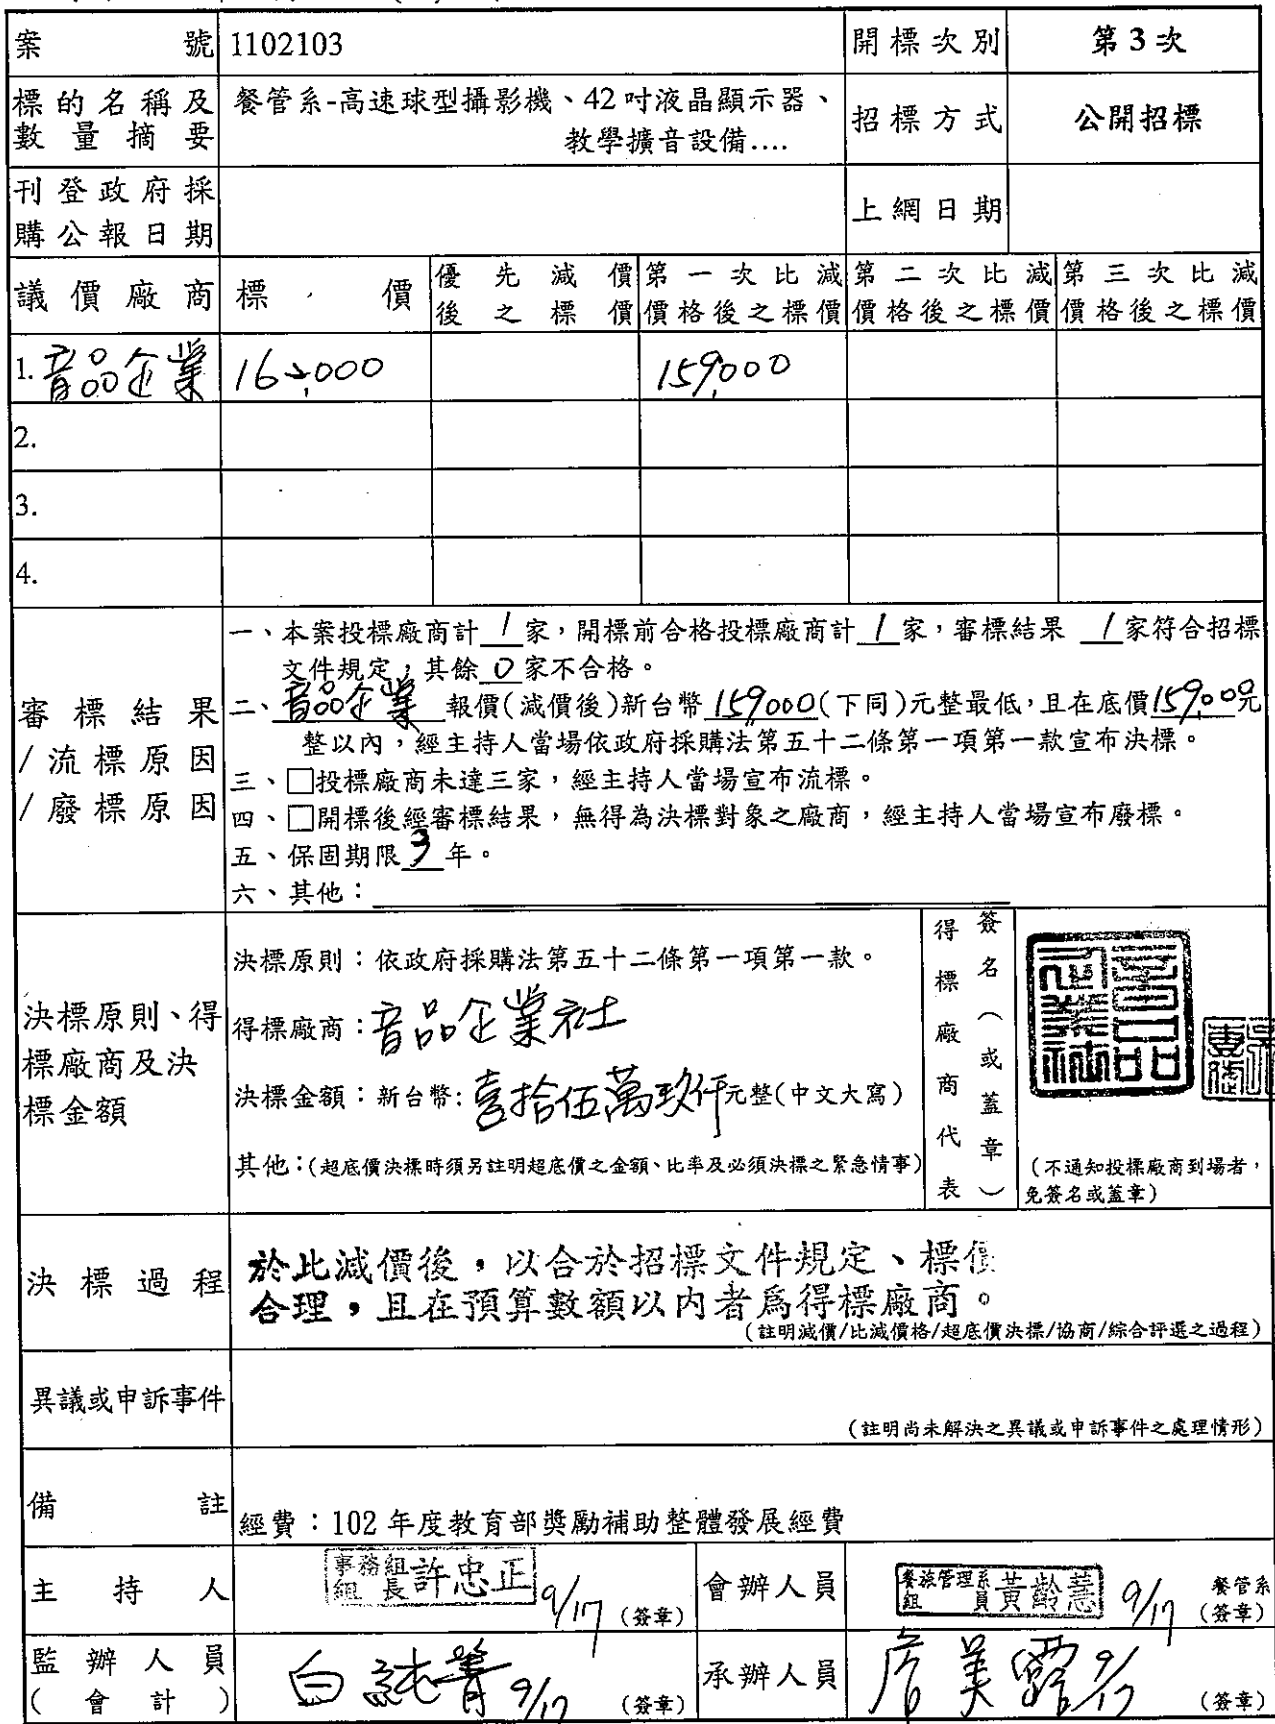 案號 1102103 開標次別 第3次
標的名稱及數量摘要 餐管系-高速球型攝影機、42吋液晶顯示器、
教學擴音設備.... 招標方式 公開招標
刊登政府採購公報日期 上網日期
議價廠商 標價 優先減價後之標價 第一次比減價格後之標價 第二次比減價格後之標價 第三次比減價格後之標價
1. 音品企業 162,000 159,000
2.
3.
4.
審標結果
/流標原因
/廢標原因
一、本案投標廠商計 1 家，開標前合格投標廠商計 1 家，審標結果 1 家符合招標
文件規定，其餘 0 家不合格。
二、音品企業 報價(減價後)新台幣 159,000(下同)元整最低，且在底價159,000元
整以內，經主持人當場依政府採購法第五十二條第一項第一款宣布決標。
三、□投標廠商未達三家，經主持人當場宣布流標。
四、□開標後經審標結果，無得為決標對象之廠商，經主持人當場宣布廢標。
五、保固期限 3 年。
六、其他：
決標原則、得
標廠商及決
標金額
決標原則：依政府採購法第五十二條第一項第一款。
得標廠商：音品企業社
決標金額：新台幣:壹拾伍萬玖仟元整(中文大寫)
其他：(超底價決標時須另註明超底價之金額、比率及必須決標之緊急情事)
得標廠商代表
簽名（或蓋章）
音品企業社
(不通知投標廠商到場者，
免簽名或蓋章)
決標過程
於比減價後，以合於招標文件規定、標價
合理，且在預算數額以內者為得標廠商。
(註明減價/比減價格/超底價決標/協商/綜合評選之過程)
異議或申訴事件
(註明尚未解決之異議或申訴事件之處理情形)
備註 經費：102 年度教育部獎勵補助整體發展經費
主持人 事務組組長許忠正 9/17 (簽章) 會辦人員 餐旅管理系組員黃齡慧 9/17 餐管系(簽章)
監辦人員(會計) 白純菁 9/17 (簽章) 承辦人員 詹美露 9/17 (簽章)